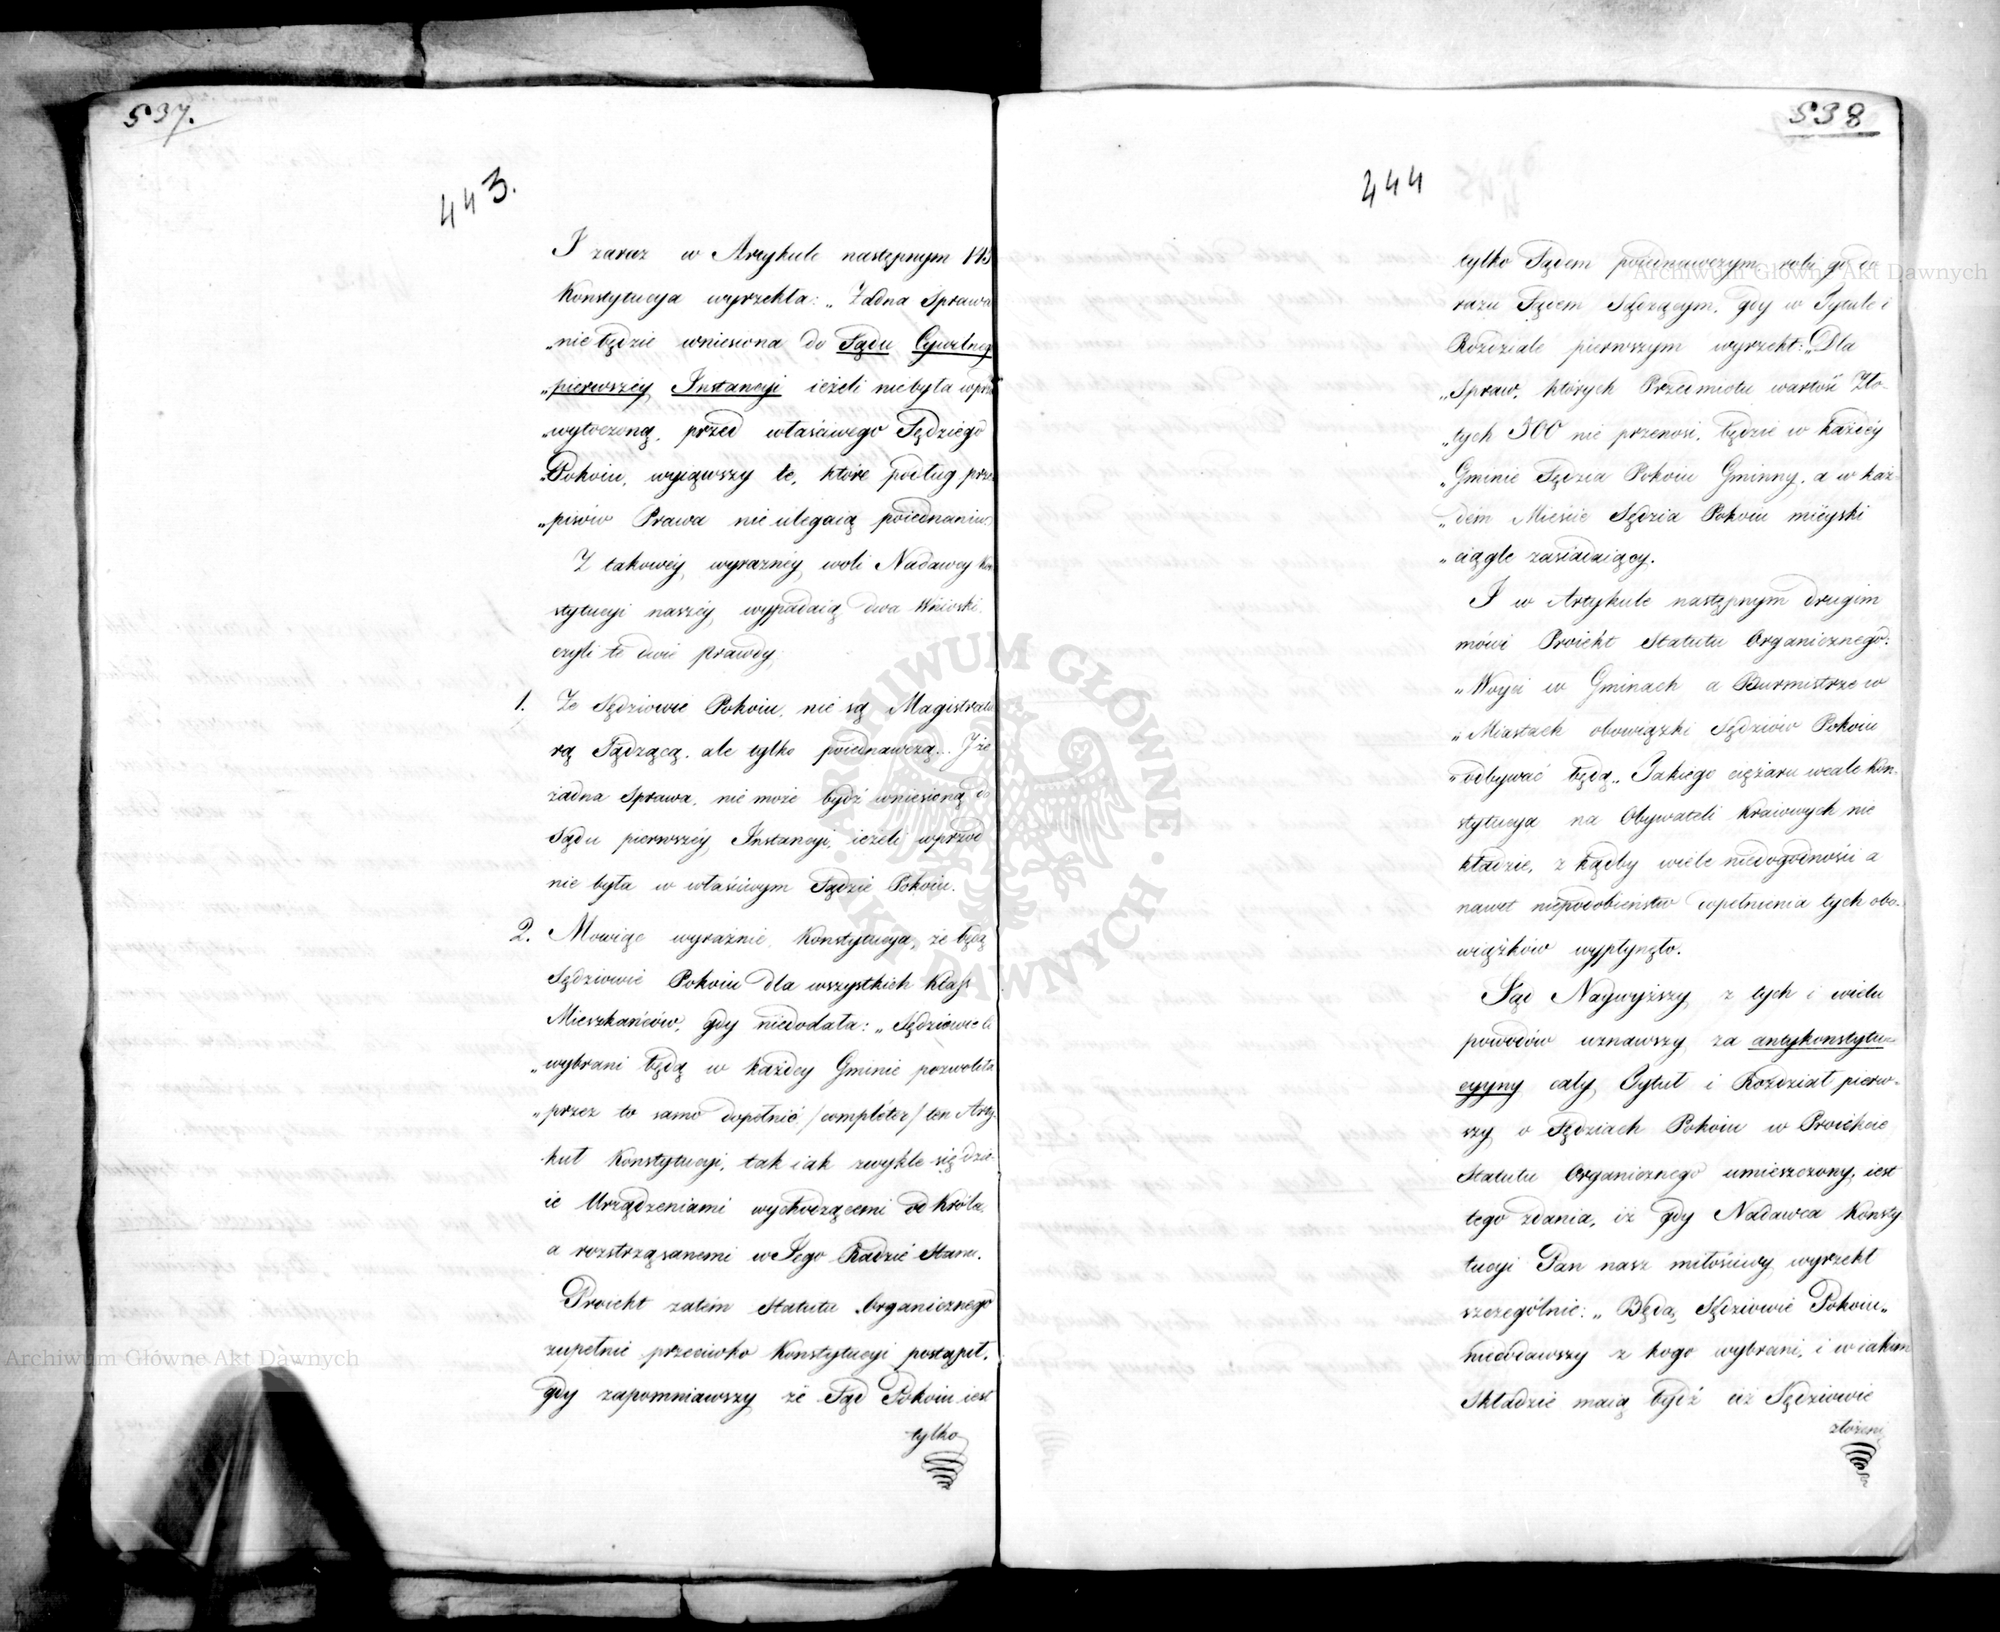 537.
443.
I zaraz w Artykule następnym 145
Konstytucya wyrzekła: „Żadna Sprawa
„nie będzie wniesiona do Sądu Cywilneg
„pierwszéy Instancyi ieżeli niebyła wprzó
„wytoczoną, przed właściwego Sędziego
„Pokoiu, wyiąwszy te, które podług prze
„pisów Prawa nie ulegaią poiednaniu.
Z takowéy, wyraznéy, woli Nadawcy Kon
stytucyi naszéy, wypadaią dwa Wnioski,
czyli te dwie prawdy,
1. Że Sędziowie Pokoiu, nie są Magistratu
rą Sądzącą, ale tylko poiednawczą... I że
żadna Sprawa, nie może bydź wniesioną do
Sądu pierwszéy Instancyi, ieżeli wprzód
nie była w właściwym Sądzie Pokoiu.
2. Mówiąc wyraźnie, Konstytucya, że będą
Sędziowie Pokoiu dla wszystkich Klass
Mieszkańców, gdy niedodała: „Sędziowie ci
„wybrani będą w każdey Gminie pozwoliła
„przez to samo dopełnić /compléter/ ten Arty
kuł Konstytucyi, tak iak zwykle się dzie
ie Urządzeniami wychodzącemi od Króla,
a rozstrząsanemi w Jego Radzie Stanu.
Proiekt zatém Statutu Organicznego
zupełnie przeciwko Konstytucyi postąpił,
gdy zapomniawszy że Sąd Pokoiu iest
tylko
538
444
tylko Sądem poiednawczym robi go od
razu Sądem Sądzącym, gdy w Tytule i
Rozdziale pierwszym wyrzekł: „Dla
„Spraw, których Przedmiotu wartość Zło-
„tych 300 nie przenosi, będzie w każdéy
„Gminie Sędzia Pokoiu Gminny, a w każ-
„dém Mieście Sędzia Pokoiu mieyski
„ciągle zasiadaiący.
I w Artykule następnym drugim
mówi Proiekt Statutu Organicznego:
„Woyci w Gminach a Burmistrze w
„Miastach obowiązki Sędziów Pokoiu
„odbywać będą„ Jakiego ciężaru wcale Kon-
stytucya na Obywateli Kraiowych nie
kładzie, z kądby wiele niedogodności a
nawet niepodobieństw dopełnienia tych obo-
wiązków wypłynęło.
Sąd Naywyższy z tych i wielu
powodów uznawszy za antykonstytu-
cyyny cały Tytuł i Rozdział pierw-
szy o Sędziach Pokoiu w Proiekcie
Statutu Organicznego umieszczony, iest
tego zdania, iż gdy Nadawca Konsty
tucyi Pan nasz miłościwy wyrzekł
szczególnie: „Będą Sędziowie Pokoiu„
niedodawszy z kogo wybrani, i w iakim
Składzie maią bydź ciż Sędziowie
złożeni
Archiwum Główne Akt Dawnych
Archiwum Główne Akt Dawnych
ARCHIWUM GŁÓWNE AKT DAWNYCH